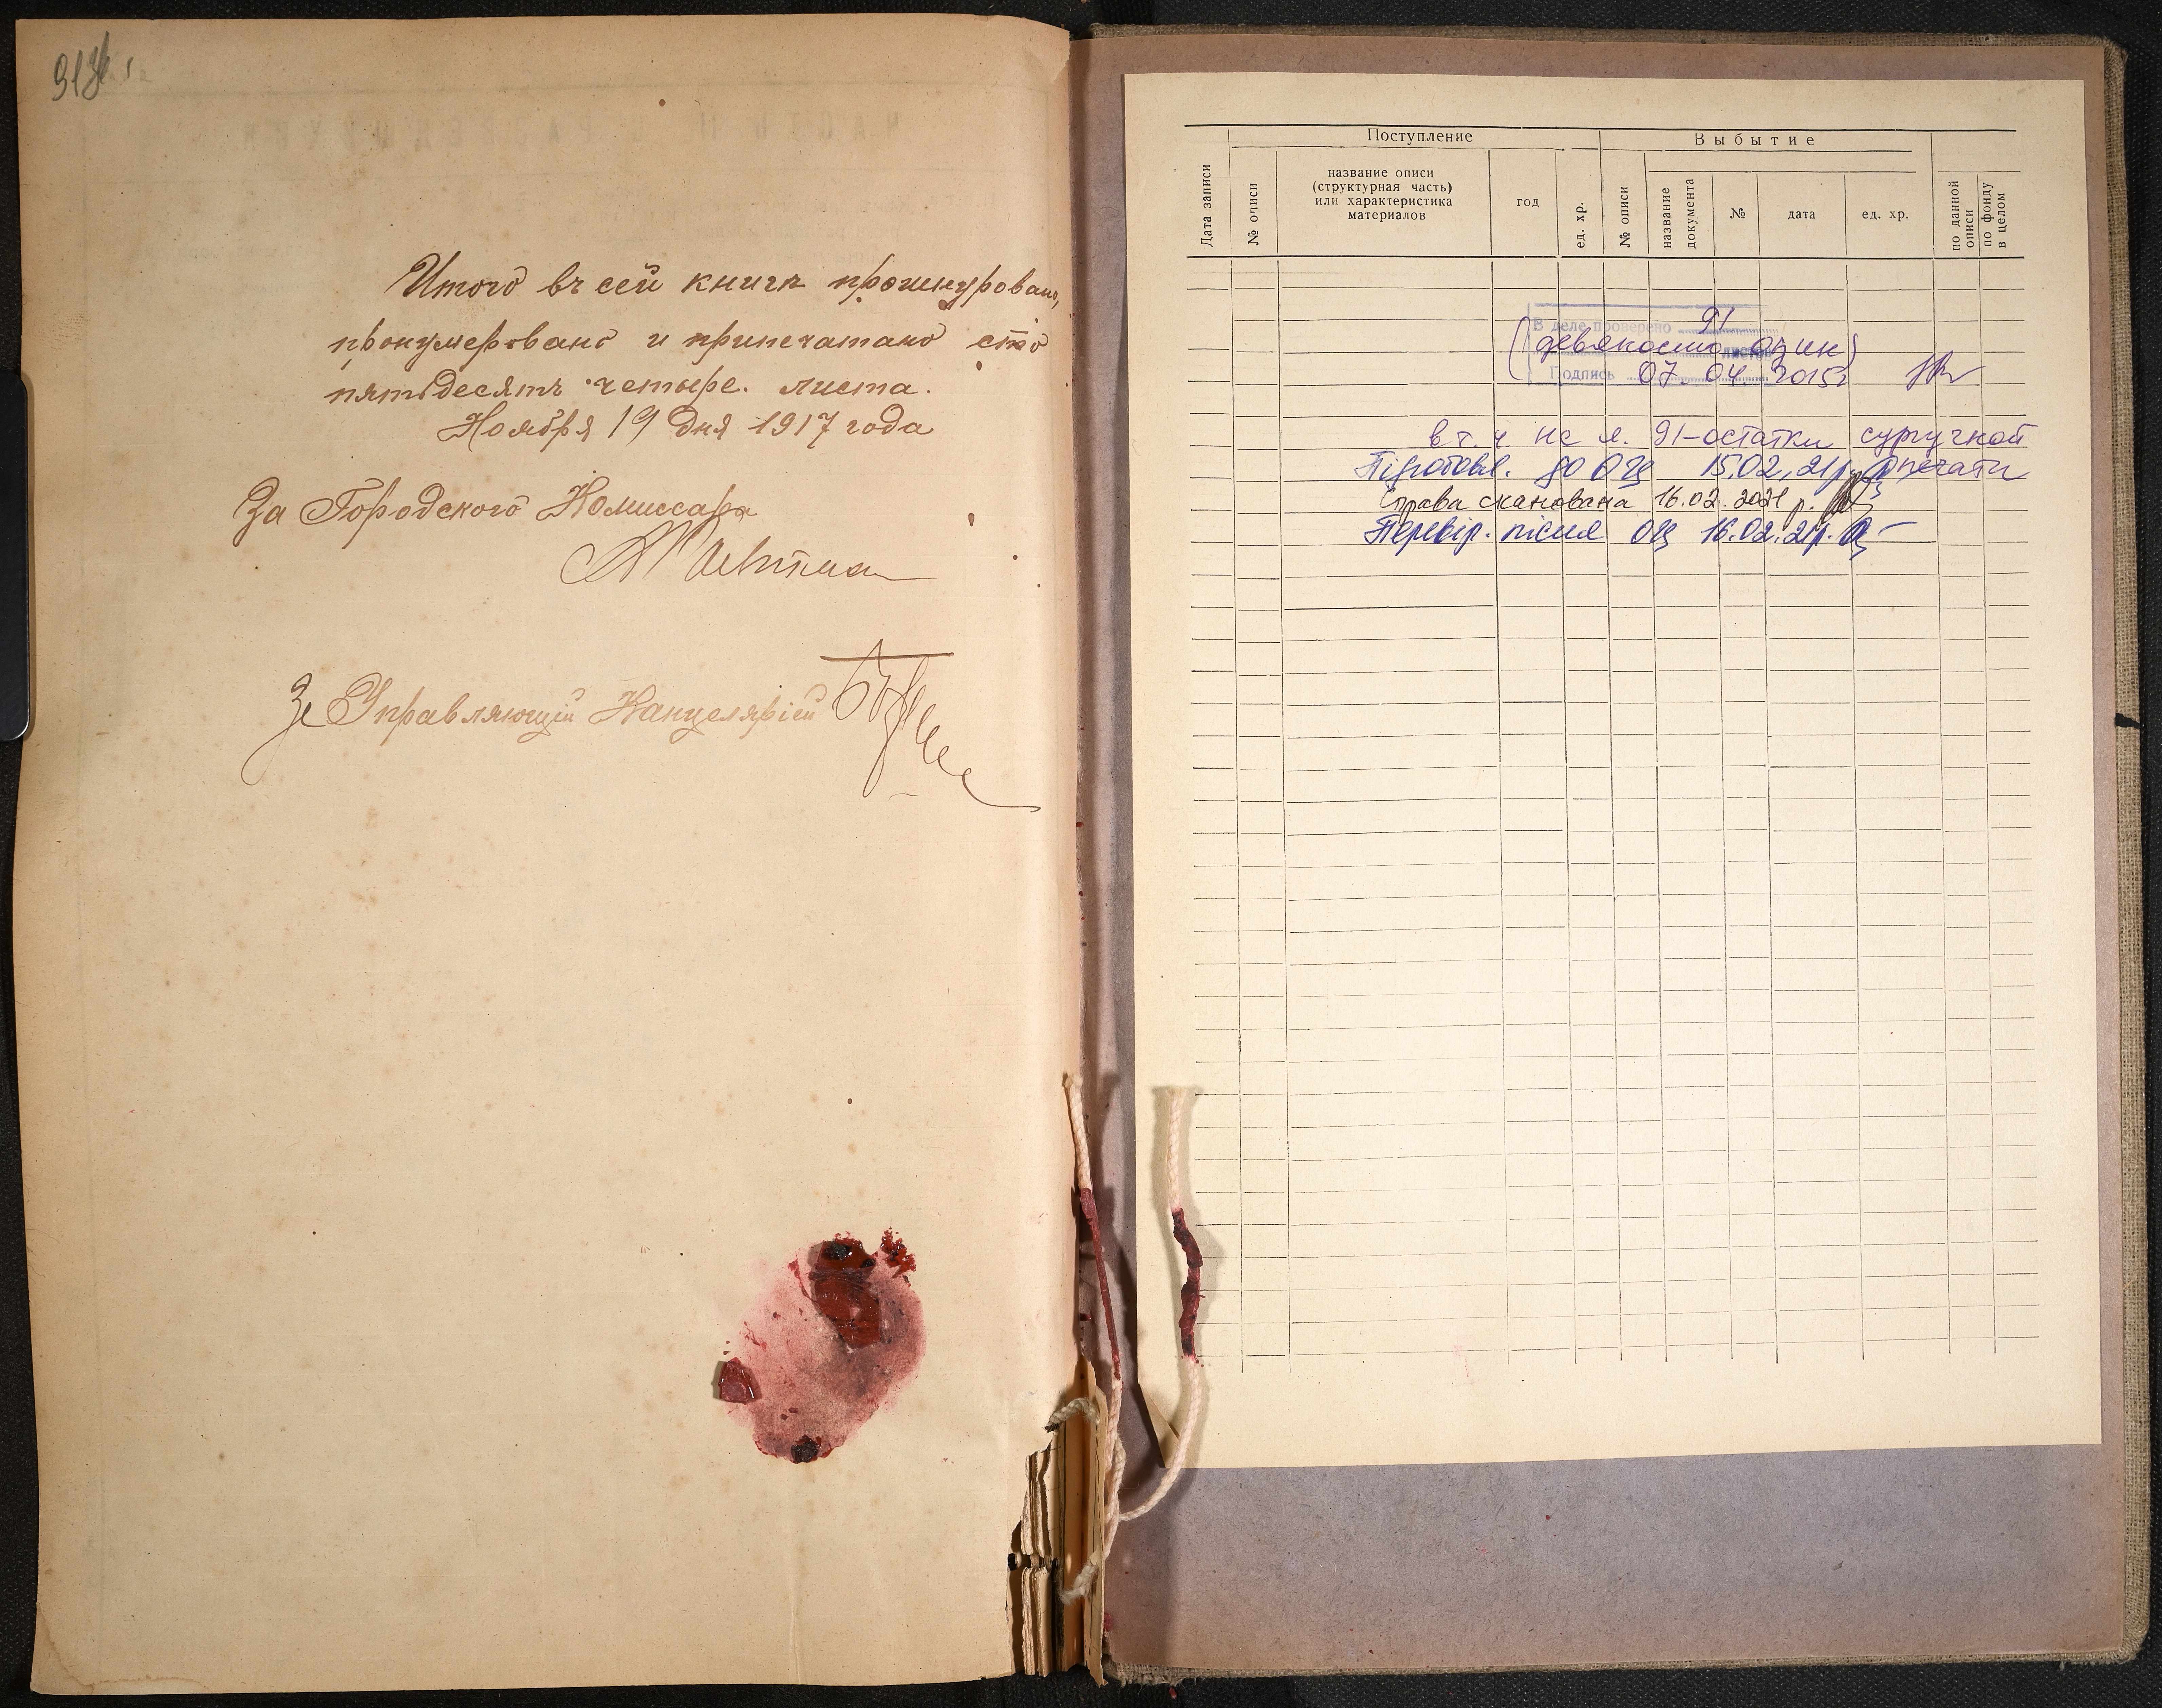 Итого въ сей книгѣ прошнуровано,
пронумеровано и припечатано сто
пятьдесятъ четыре. листа.
Ноября 19 дня 1917 года
За Городского Комиссара
За Управляющій Канцеляріей
Поступление
Выбытие
Дата записи
№ описи
название описи
(структурная часть)
или характеристика
материалов
год
ед. хр.
№ описи
название
документа
№
дата
ед. хр.
по данной
описи
по фонду
в целом
В деле проверено 91
(девяносто один) листов
Подпись 07.04.2015г
в т.ч на л. 91-остатки сургучной
Підготовл. до ОЦ 15.02.21р. печати
Справа сканована 16.02.2021 р.
Перевір. після ОЦ 16.02.21р.